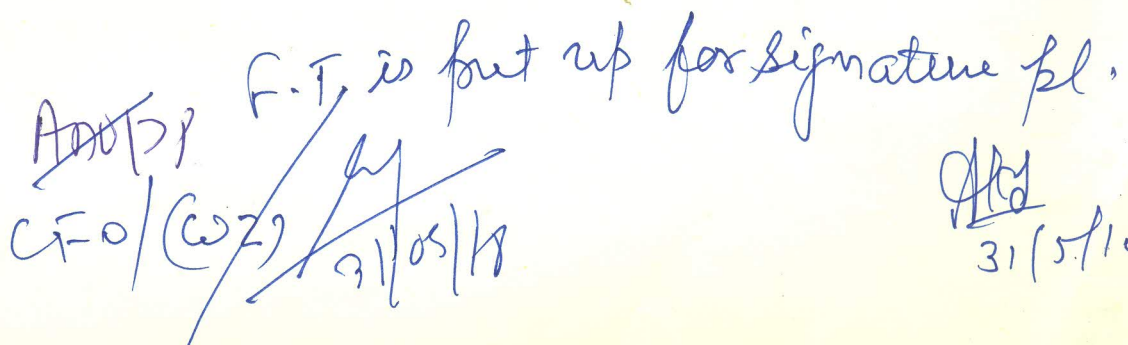 F.T. is put up for signature pl.
CFO/(WZ)
31/05/18
31/5/1